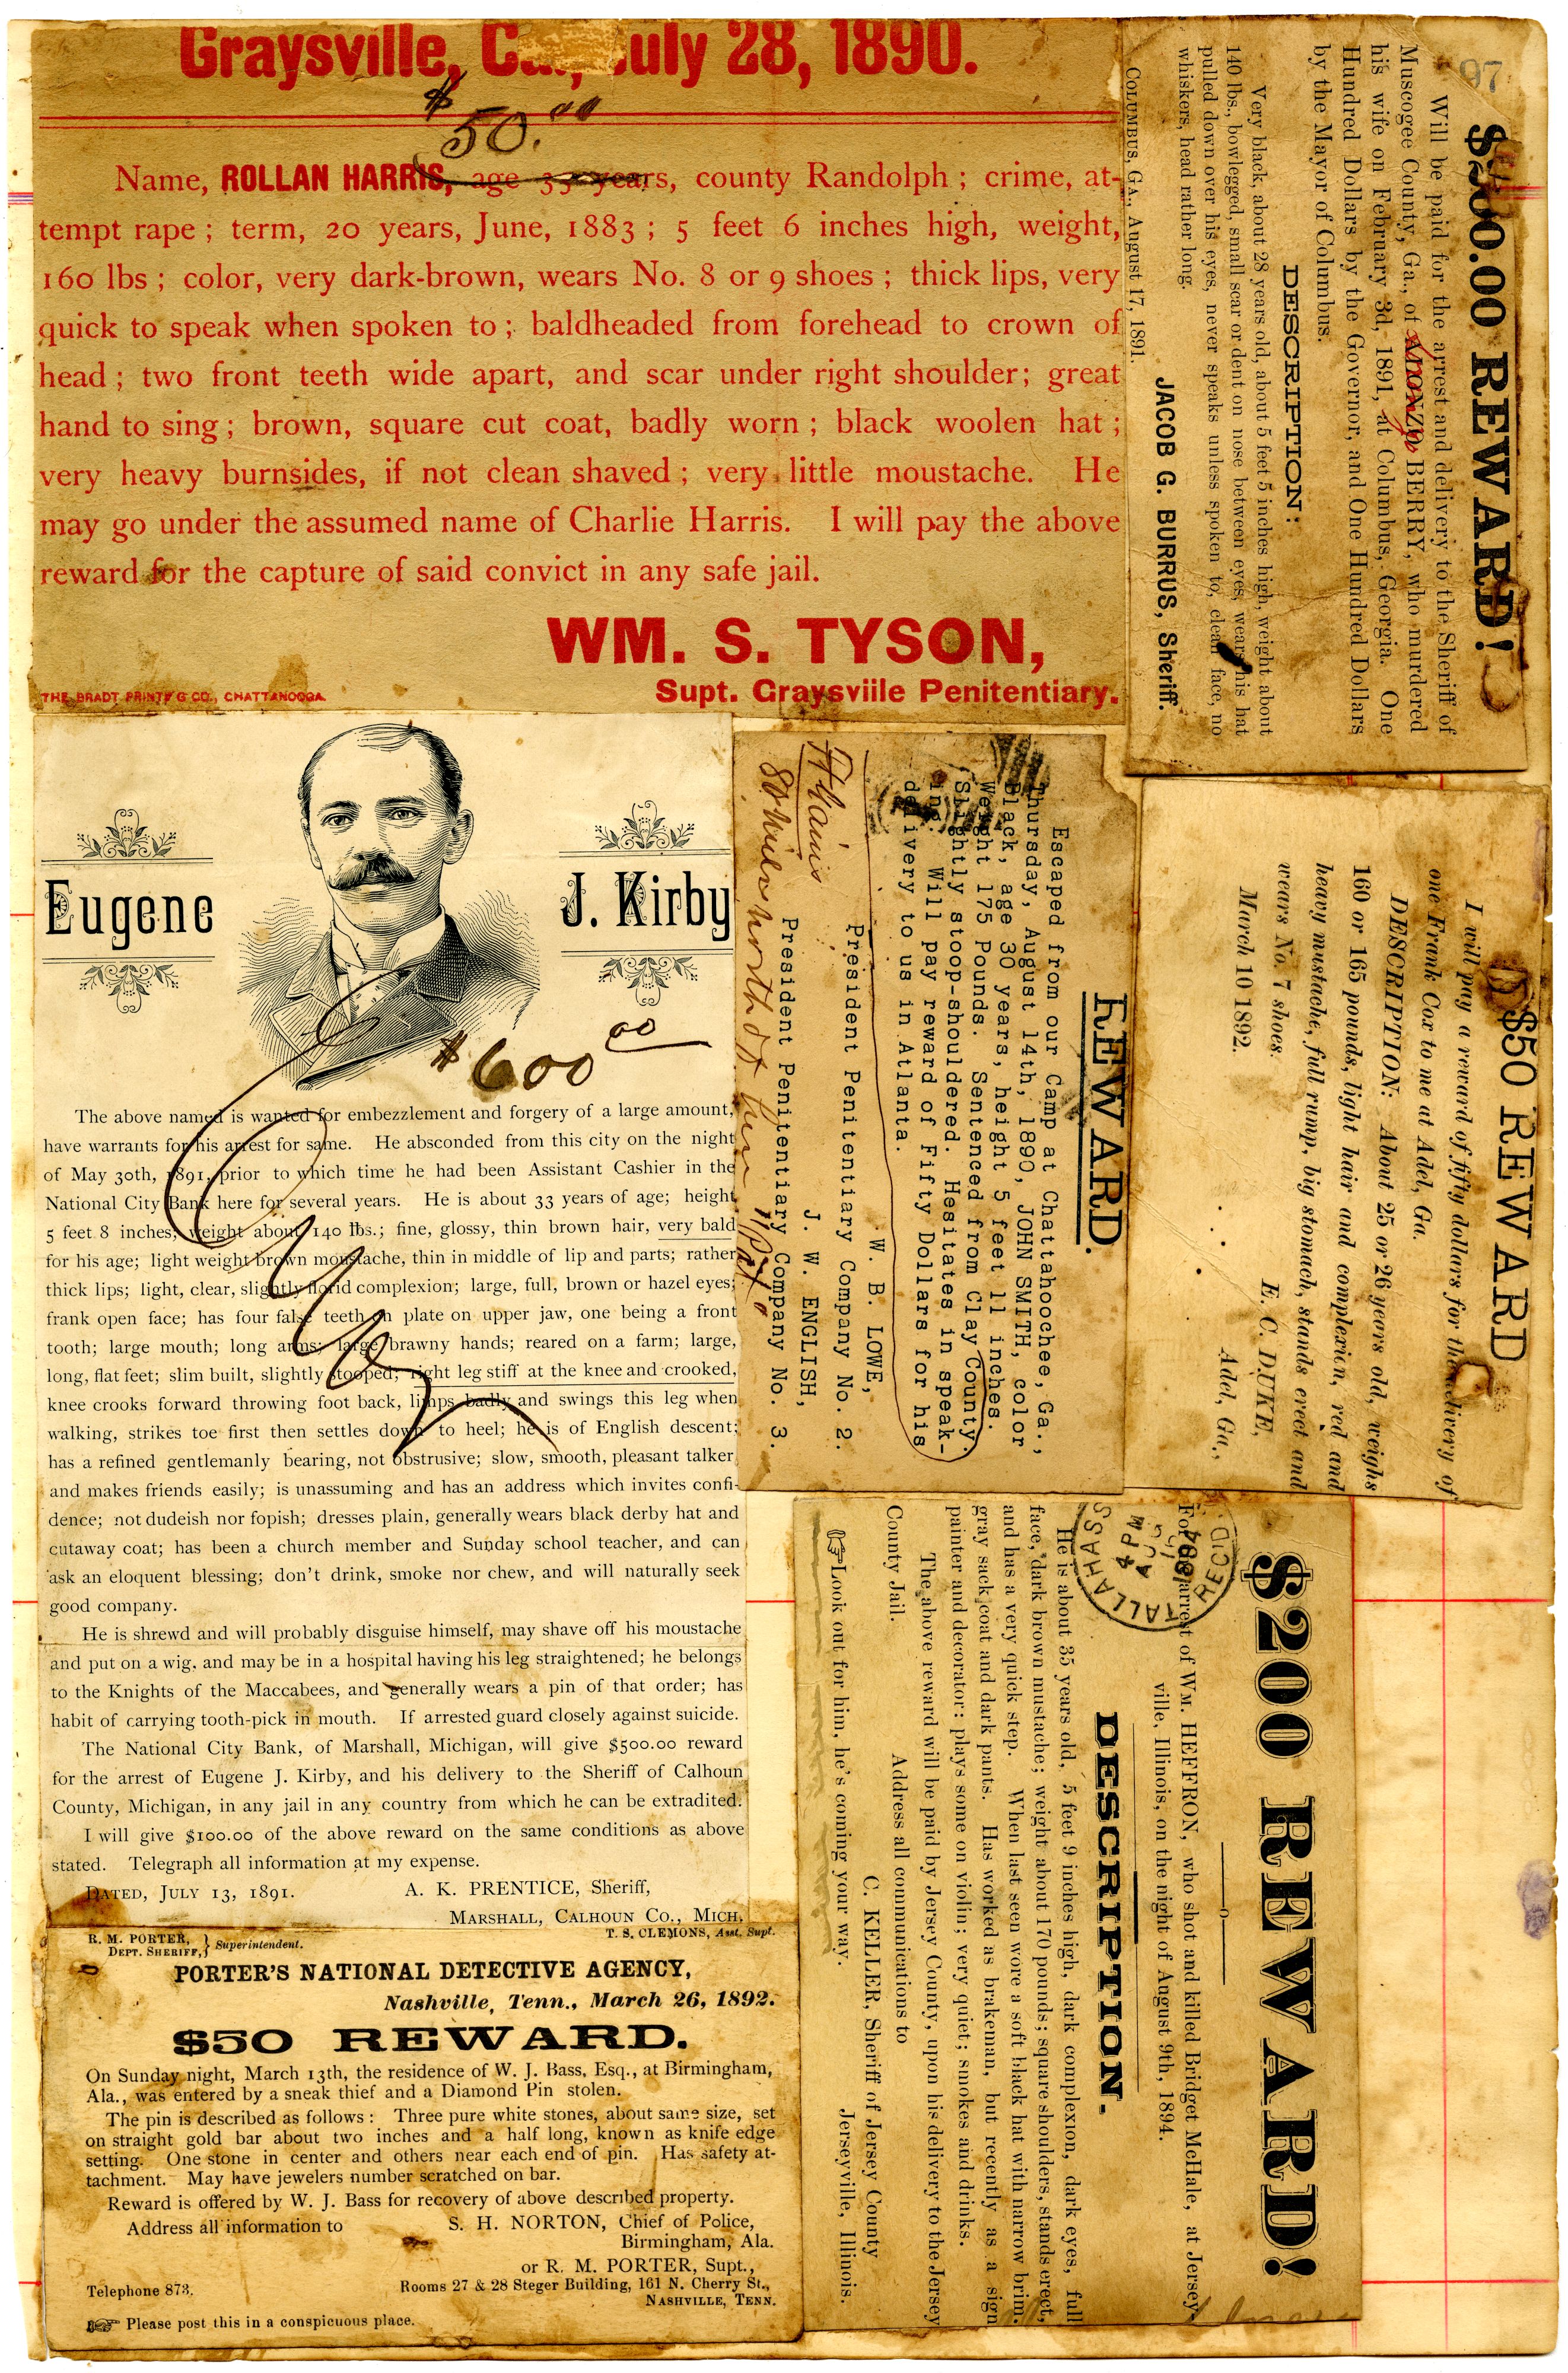 Graysville, July 28, 1890.
$50.00
Name, ROLLAN HARRIS, age 35 years, county Randolph ; crime, at-
tempt rape ; term, 20 years, June, 1883 ; 5 feet 6 inches high, weight,
160 lbs ; color, very dark-brown, wears No. 8 or 9 shoes ; thick lips, very
quick to speak when spoken to ; baldheaded from forehead to crown of
head ; two front teeth wide apart, and scar under right shoulder; great
hand to sing ; brown, square cut coat, badly worn ; black woolen hat ;
very heavy burnsides, if not clean shaved ; very little moustache. He
may go under the assumed name of Charlie Harris. I will pay the above
reward for the capture of said convict in any safe jail.
WM. S. TYSON,
Supt. Graysviile Penitentiary.
THE BRADT PRINT'G CO., CHATTANOOGA.
97
REWARD!
Will be paid for the arrest and delivery to the Sheriff of
Muscogee County, Ga., of ALONZO BERRY, who murdered
his wife on February 3d, 1891, at Columbus, Georgia. One
Hundred Dollars by the Governor, and One Hundred Dollars
by the Mayor of Columbus.
DESCRIPTION:
Very black, about 28 years old, about 5 feet 5 inches high, weight about
140 lbs., bowlegged, small scar or dent on nose between eyes, wears his hat
pulled down over his eyes, never speaks unless spoken to, clean face, no
whiskers, head rather long.
JACOB G. BURRUS, Sheriff.
COLUMBUS, GA., August 17, 1891.
$50 REWARD
I will pay a reward of fifty dollars for the delivery of
one Frank Cox to me at Adel, Ga.
DESCRIPTION: About 25 or 26 years old, weighs
160 or 165 pounds, light hair and complexion, red and
heavy mustache, full rump, big stomach, stands erect and
wears No. 7 shoes.
E. C. DUKE,
March 10 1892. Adel, Ga.,
REWARD.
Escaped from our Camp at Chattahoochee, Ga.,
Thursday, August 14th, 1890, JOHN SMITH, color
Black, age 30 years, height 5 feet 11 inches.
Weight 175 Pounds. Sentenced from Clay County.
Slightly stoop-shouldered. Hesitates in speak-
ing. Will pay reward of Fifty Dollars for his
delivery to us in Atlanta.
W. B. LOWE,
President Penitentiary Company No. 2.
J. W. ENGLISH,
President Penitentiary Company No. 3.
Eugene J. Kirby
$600 00
The above named is wanted for embezzlement and forgery of a large amount,
have warrants for his arrest for same. He absconded from this city on the night
of May 30th, 1891, prior to which time he had been Assistant Cashier in the
National City Bank here for several years. He is about 33 years of age; height
5 feet 8 inches; weight about 140 lbs.; fine, glossy, thin brown hair, very bald
for his age; light weight brown moustache, thin in middle of lip and parts; rather
thick lips; light, clear, slightly florid complexion; large, full, brown or hazel eyes;
frank open face; has four false teeth on plate on upper jaw, one being a front
tooth; large mouth; long arms; large brawny hands; reared on a farm; large,
long, flat feet; slim built, slightly stooped; right leg stiff at the knee and crooked,
knee crooks forward throwing foot back, limps badly and swings this leg when
walking, strikes toe first then settles down to heel; he is of English descent;
has a refined gentlemanly bearing, not obstrusive; slow, smooth, pleasant talker
and makes friends easily; is unassuming and has an address which invites confi-
dence; not dudeish nor fopish; dresses plain, generally wears black derby hat and
cutaway coat; has been a church member and Sunday school teacher, and can
ask an eloquent blessing; don't drink, smoke nor chew, and will naturally seek
good company.
He is shrewd and will probably disguise himself, may shave off his moustache
and put on a wig, and may be in a hospital having his leg straightened; he belongs
to the Knights of the Maccabees, and generally wears a pin of that order; has
habit of carrying tooth-pick in mouth. If arrested guard closely against suicide.
The National City Bank, of Marshall, Michigan, will give $500.00 reward
for the arrest of Eugene J. Kirby, and his delivery to the Sheriff of Calhoun
County, Michigan, in any jail in any country from which he can be extradited.
I will give $100.00 of the above reward on the same conditions as above
stated. Telegraph all information at my expense.
DATED, JULY 13, 1891. A. K. PRENTICE, Sheriff,
MARSHALL, CALHOUN CO., MICH.
$200 REWARD!
For arrest of WM. HEFFRON, who shot and killed Bridget McHale, at Jersey-
ville, Illinois, on the night of August 9th, 1894.
TALLAHASS
REC'D.
4 PM
AUG
1894
DESCRIPTION.
He is about 35 years old, 5 feet 9 inches high, dark complexion, dark eyes, full
face, dark brown mustache; weight about 170 pounds; square shoulders, stands erect,
and has a very quick step. When last seen wore a soft black hat with narrow brim,
gray sack coat and dark pants. Has worked as brakeman, but recently as a sign
painter and decorator: plays some on violin; very quiet; smokes and drinks.
The above reward will be paid by Jersey County, upon his delivery to the Jersey
County Jail.
Address all communications to
C. KELLER, Sheriff of Jersey County
Jerseyville, Illinois.
Look out for him, he's coming your way.
R. M. PORTER, DEPT. SHERIFF, } Superintendent. T. S. CLEMONS, Asst. Supt.
PORTER'S NATIONAL DETECTIVE AGENCY,
Nashville, Tenn., March 26, 1892.
$50 REWARD.
On Sunday night, March 13th, the residence of W. J. Bass, Esq., at Birmingham,
Ala., was entered by a sneak thief and a Diamond Pin stolen.
The pin is described as follows : Three pure white stones, about same size, set
on straight gold bar about two inches and a half long, known as knife edge
setting. One stone in center and others near each end of pin. Has safety at-
tachment. May have jewelers number scratched on bar.
Reward is offered by W. J. Bass for recovery of above described property.
Address all information to S. H. NORTON, Chief of Police,
Birmingham, Ala.
or R. M. PORTER, Supt.,
Telephone 873. Rooms 27 & 28 Steger Building, 161 N. Cherry St.,
NASHVILLE, TENN.
Please post this in a conspicuous place.